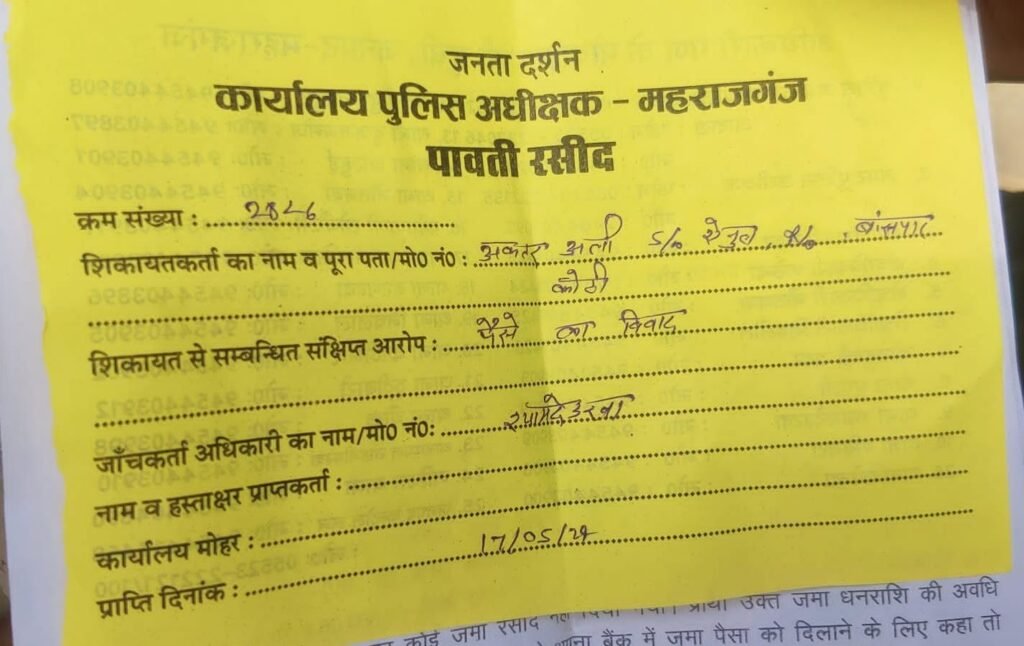 जनता दर्शन
कार्यालय पुलिस अधीक्षक - महराजगंज
पावती रसीद
क्रम संख्या : 2846
शिकायतकर्ता का नाम व पूरा पता/मो0 नं0 : अकतर अली S/o R/o बांसपार
कोठी
शिकायत से सम्बन्धित संक्षिप्त आरोप : पैसे का विवाद
जाँचकर्ता अधिकारी का नाम/मो0 नं0: श्यामदेउरवा
नाम व हस्ताक्षर प्राप्तकर्ता :
कार्यालय मोहर :
प्राप्ति दिनांक : 17/05/24
कोई जमा रसीद नहीं दिया गया। प्रार्थी उक्त जमा धनराशि की अवधि
बैंक में जमा पैसा को दिलाने के लिए कहा तो